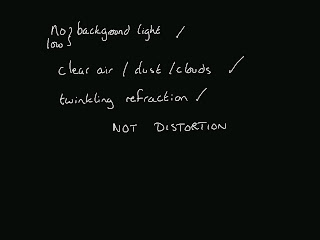 no } background light ✓
low }
clear air / dust / clouds ✓
twinkling refraction ✓
NOT DISTORTION